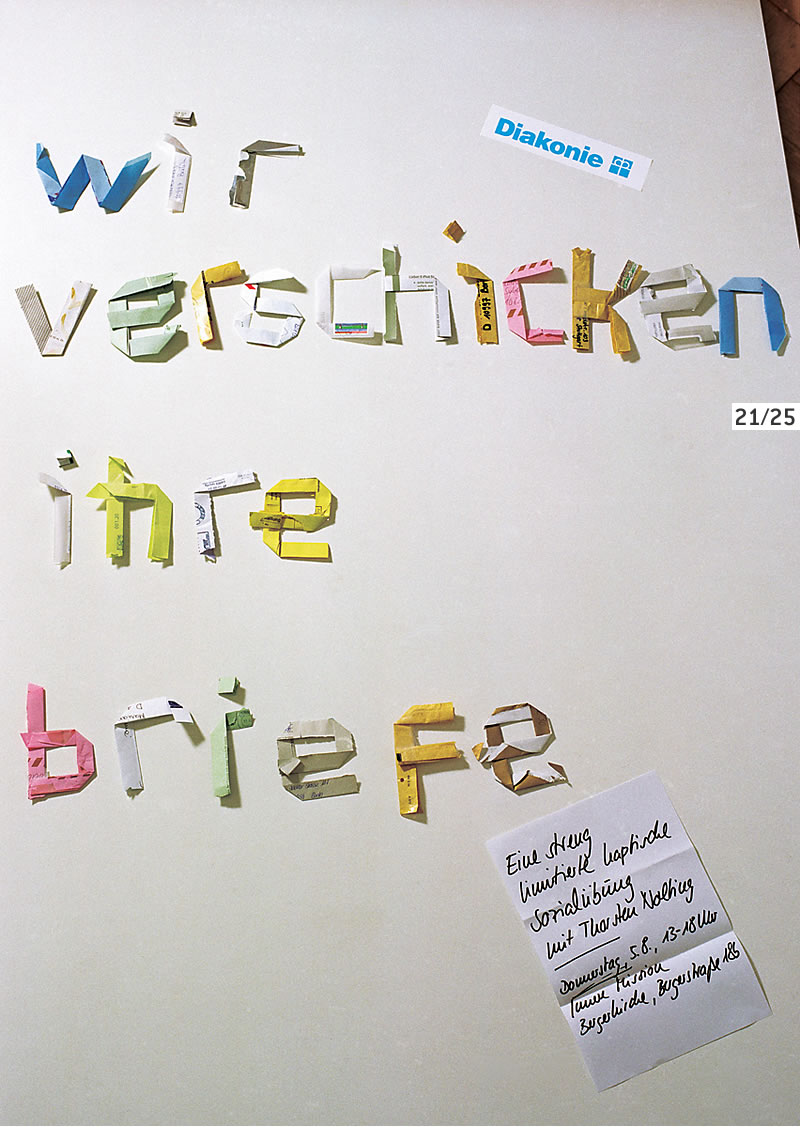 wir
Diakonie
verschicken
D 10997 Ber
21/25
ihre
briefe
Eine streng
limitierte haptische
Sozialübung
mit Thorsten Nolting
Donnerstag, 5.8., 13-18 Uhr
Innere Mission
Bergerkirche, Bergerstraße 18b